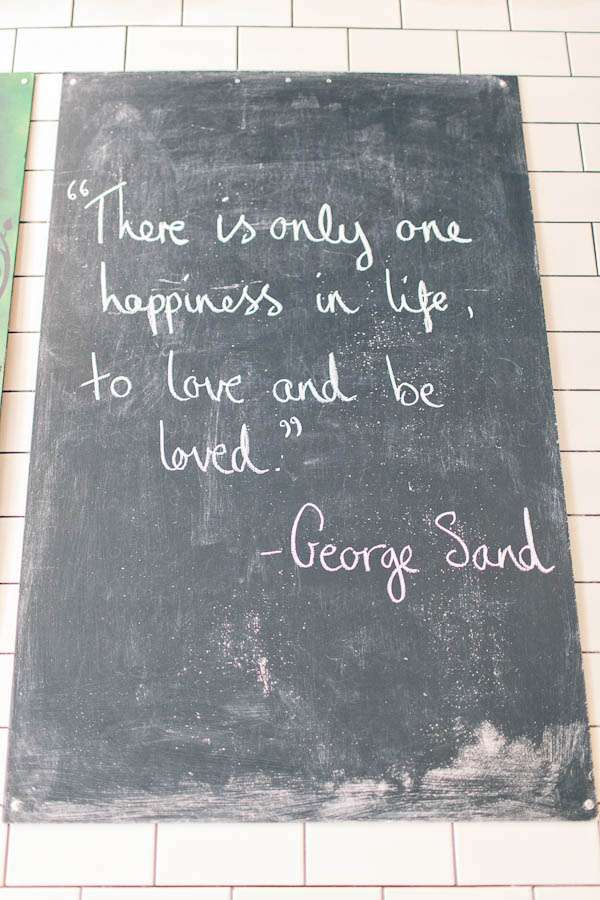 “There is only one
happiness in life,
to love and be
loved.”
-George Sand